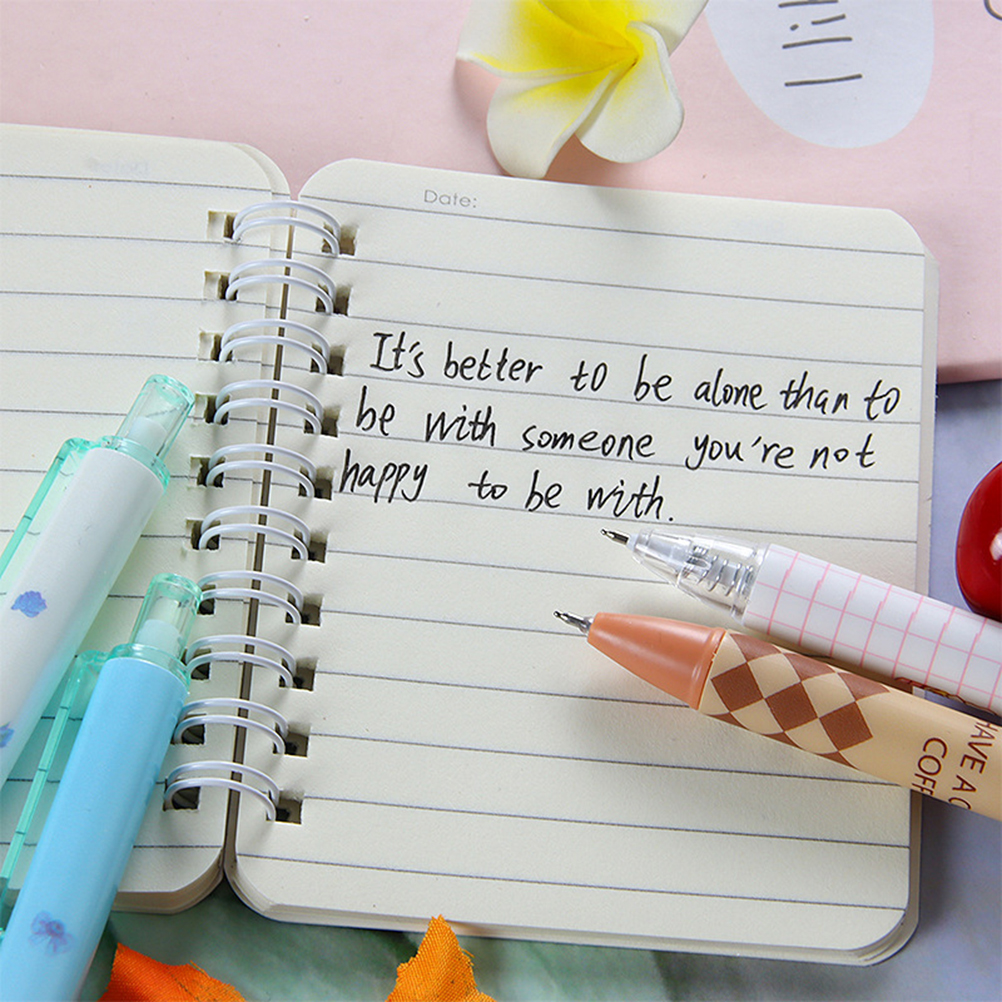 Date:
It's better to be alone than to
be with someone you're not
happy to be with.
HAVE A
COF